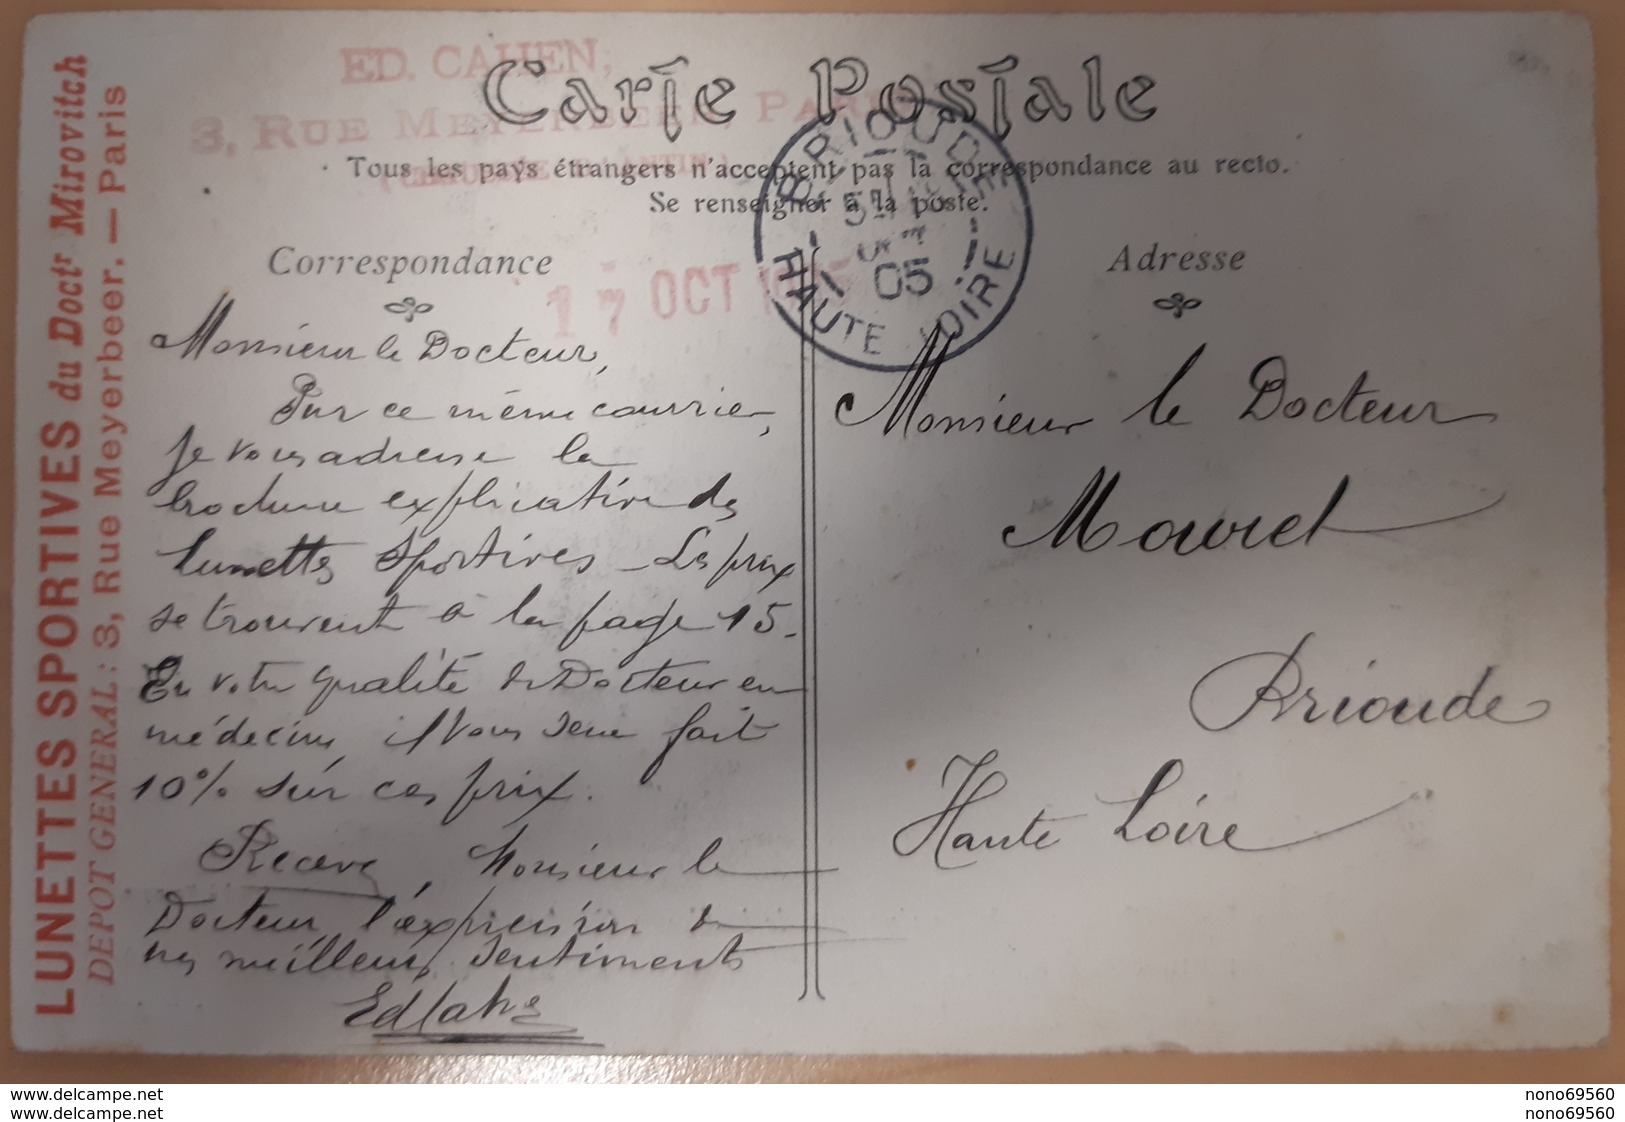 LUNETTES SPORTIVES du Doctr Mirovitch
DEPOT GENERAL : 3, Rue Meyerbeer. — Paris
ED. CAHEN,
3, RUE MEYERBEER, PARIS
Carte Postale
Tous les pays étrangers n'acceptent pas la correspondance au recto.
Se renseigner à la poste.
BRIOUDE
05
HAUTE LOIRE
17 OCT
Correspondance
Monsieur le Docteur,
Par ce même courrier,
je vous adresse la
brochure explicative des
lunettes Sportives - Les prix
se trouvent à la page 15.
En votre qualité de Docteur en
médecine, il vous sera fait
10% sur ces prix.
Recevez, Monsieur le
Docteur, l'expression de
mes meilleurs sentiments
Ed Cahen
Adresse
Monsieur le Docteur
Mouret
Brioude
Haute Loire
delcampe.net
delcampe.net
nono69560
nono69560